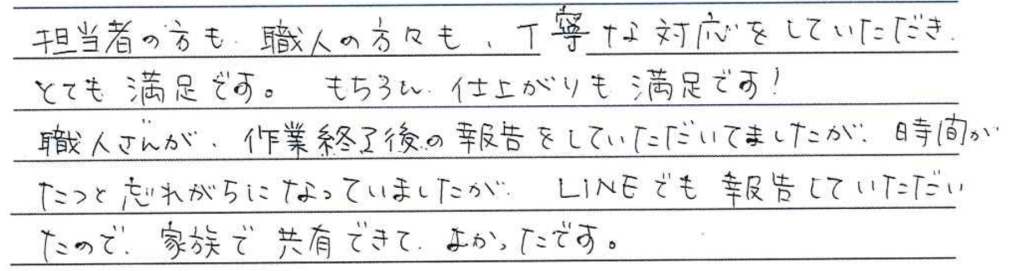 担当者の方も、職人の方々も、丁寧な対応をしていただき、
とても満足です。もちろん、仕上がりも満足です！
職人さんが、作業終了後の報告をしていただいてましたが、時間が
たつと忘れがちになっていましたが、LINEでも報告していただい
たので、家族で共有できて、よかったです。